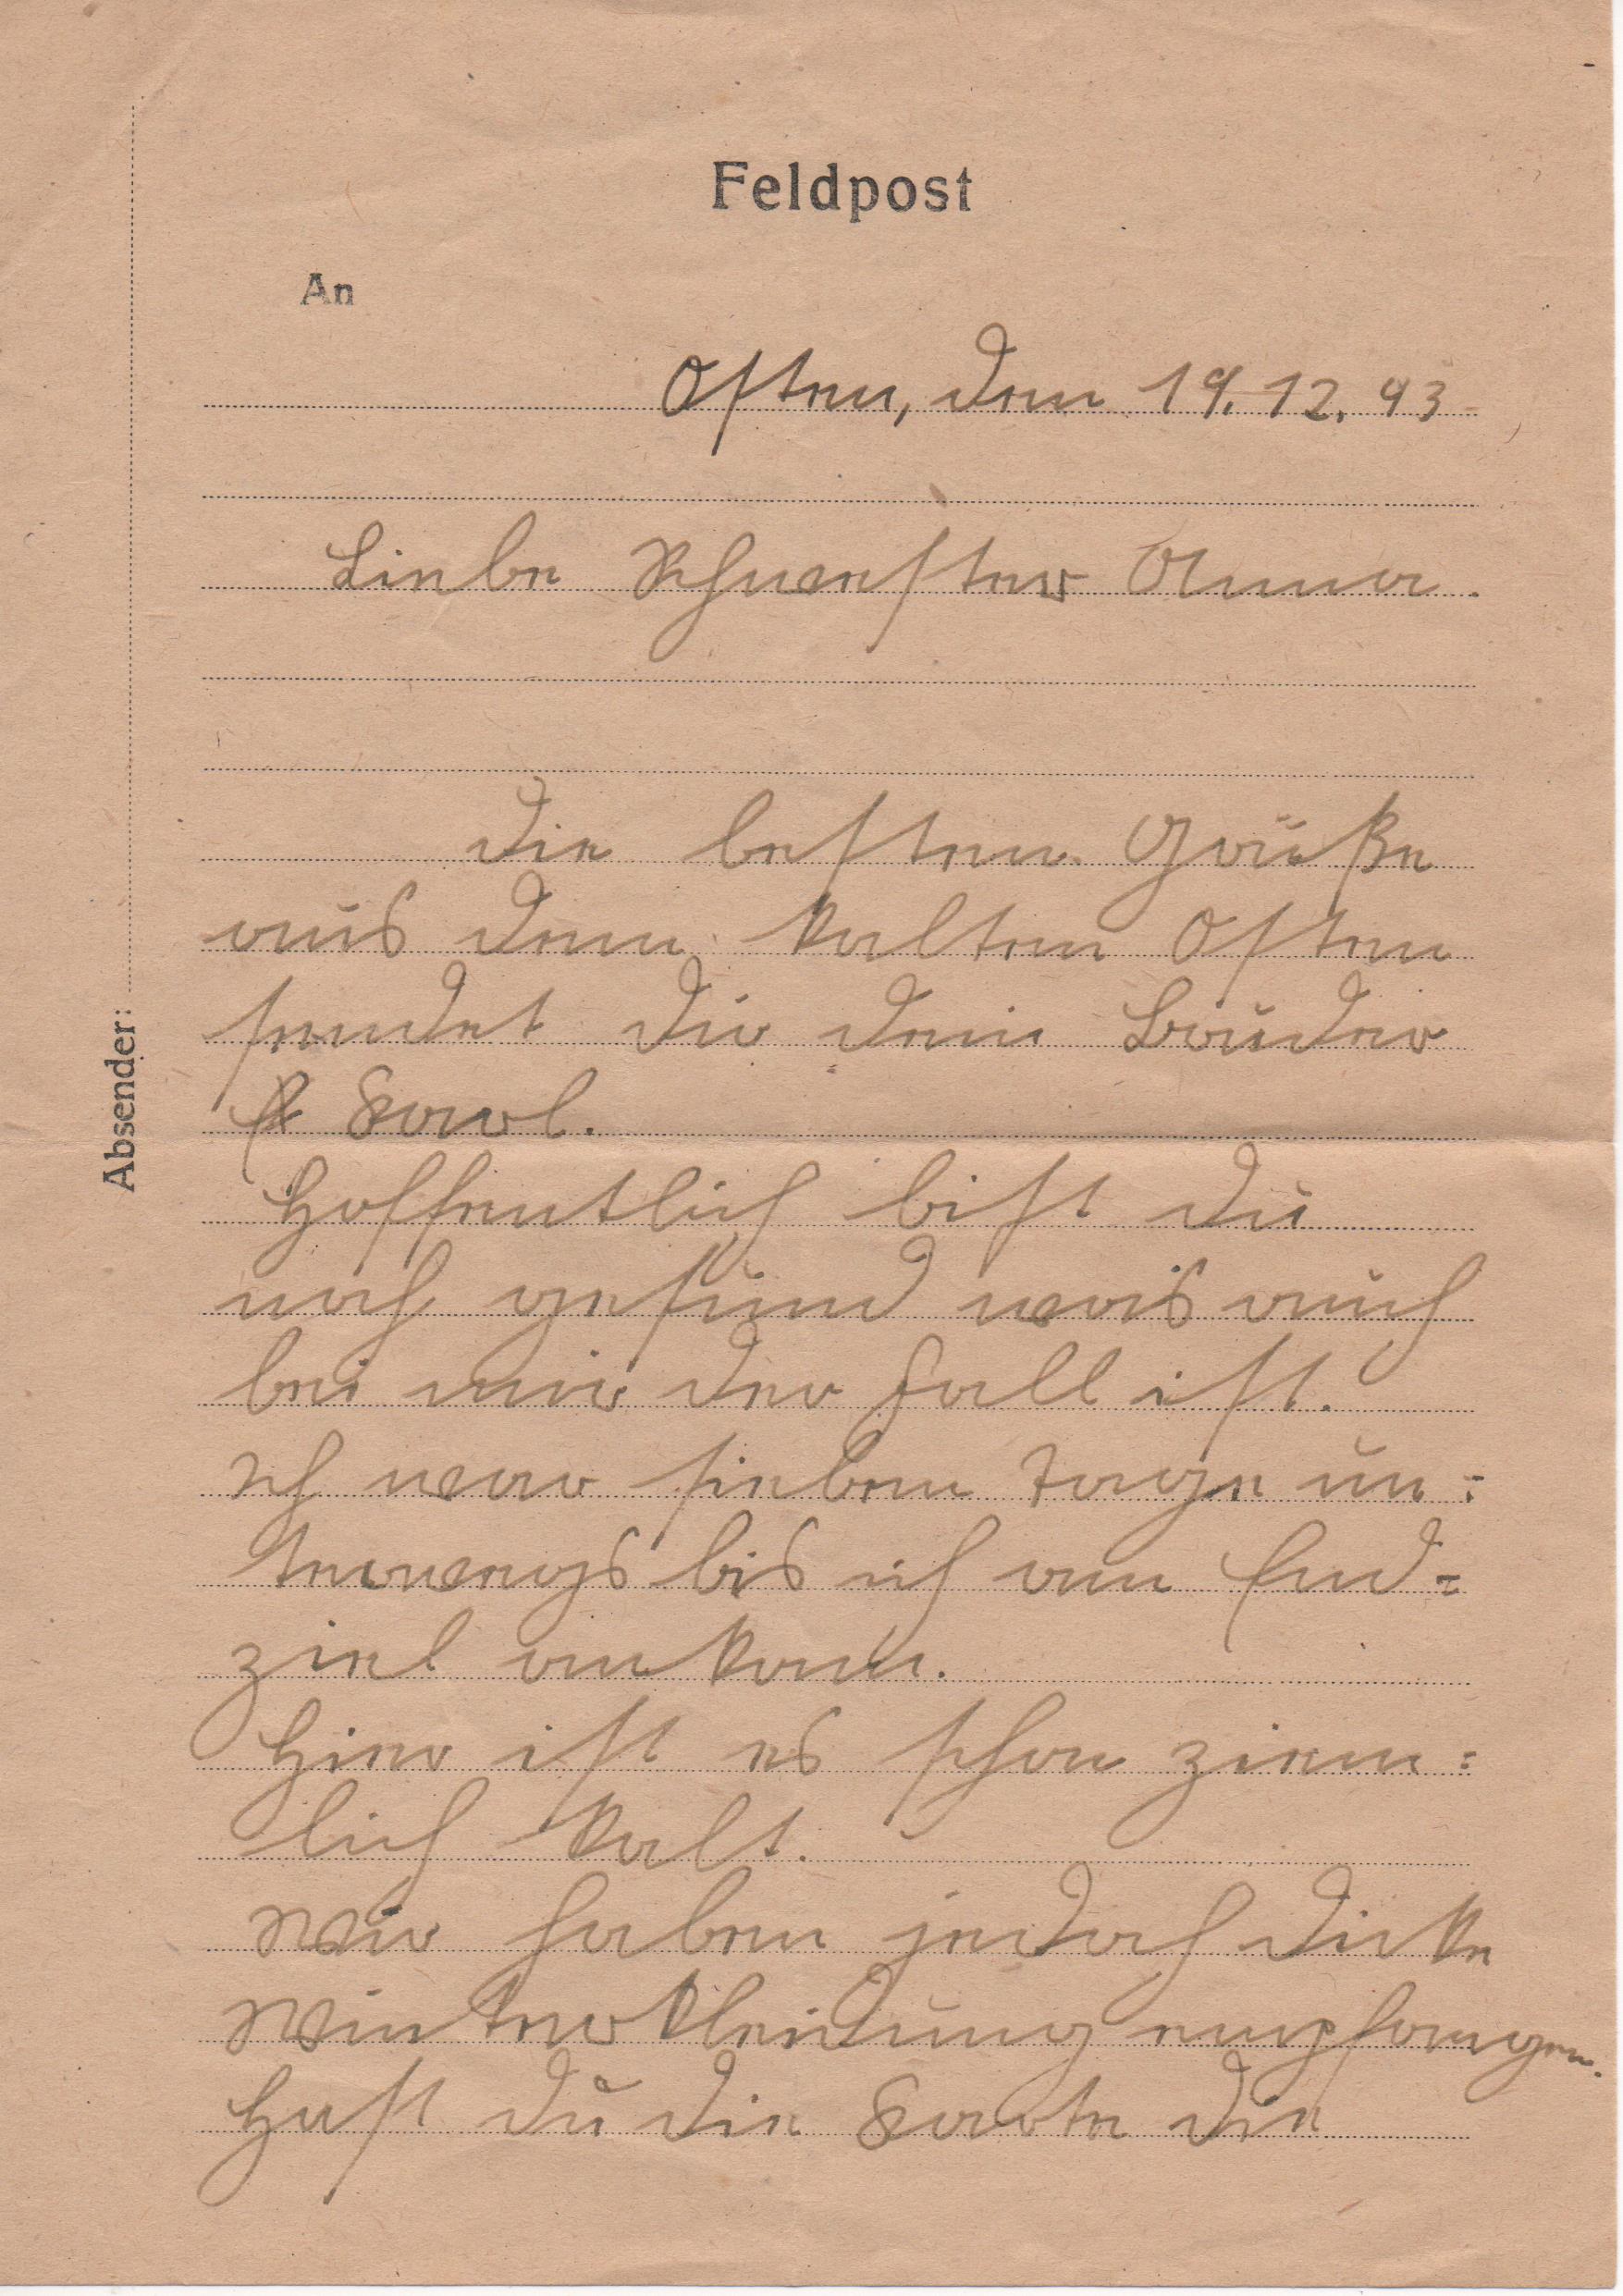 Feldpost
An
Osten, den 19.12.43
Liebe Schwester Anna.
Die besten Grüße
aus dem kalten Osten
sendet dir dein Bruder
Karl.
Hoffentlich bist du
noch gesund was auch
bei mir der Fall ist.
Ich war sieben Tage un=
terwegs bis ich am End=
ziel ankam.
Hier ist es schon ziem=
lich kalt.
Wir haben jedoch dicke
Winterkleidung empfangen.
Hast du die Karte die
Absender: